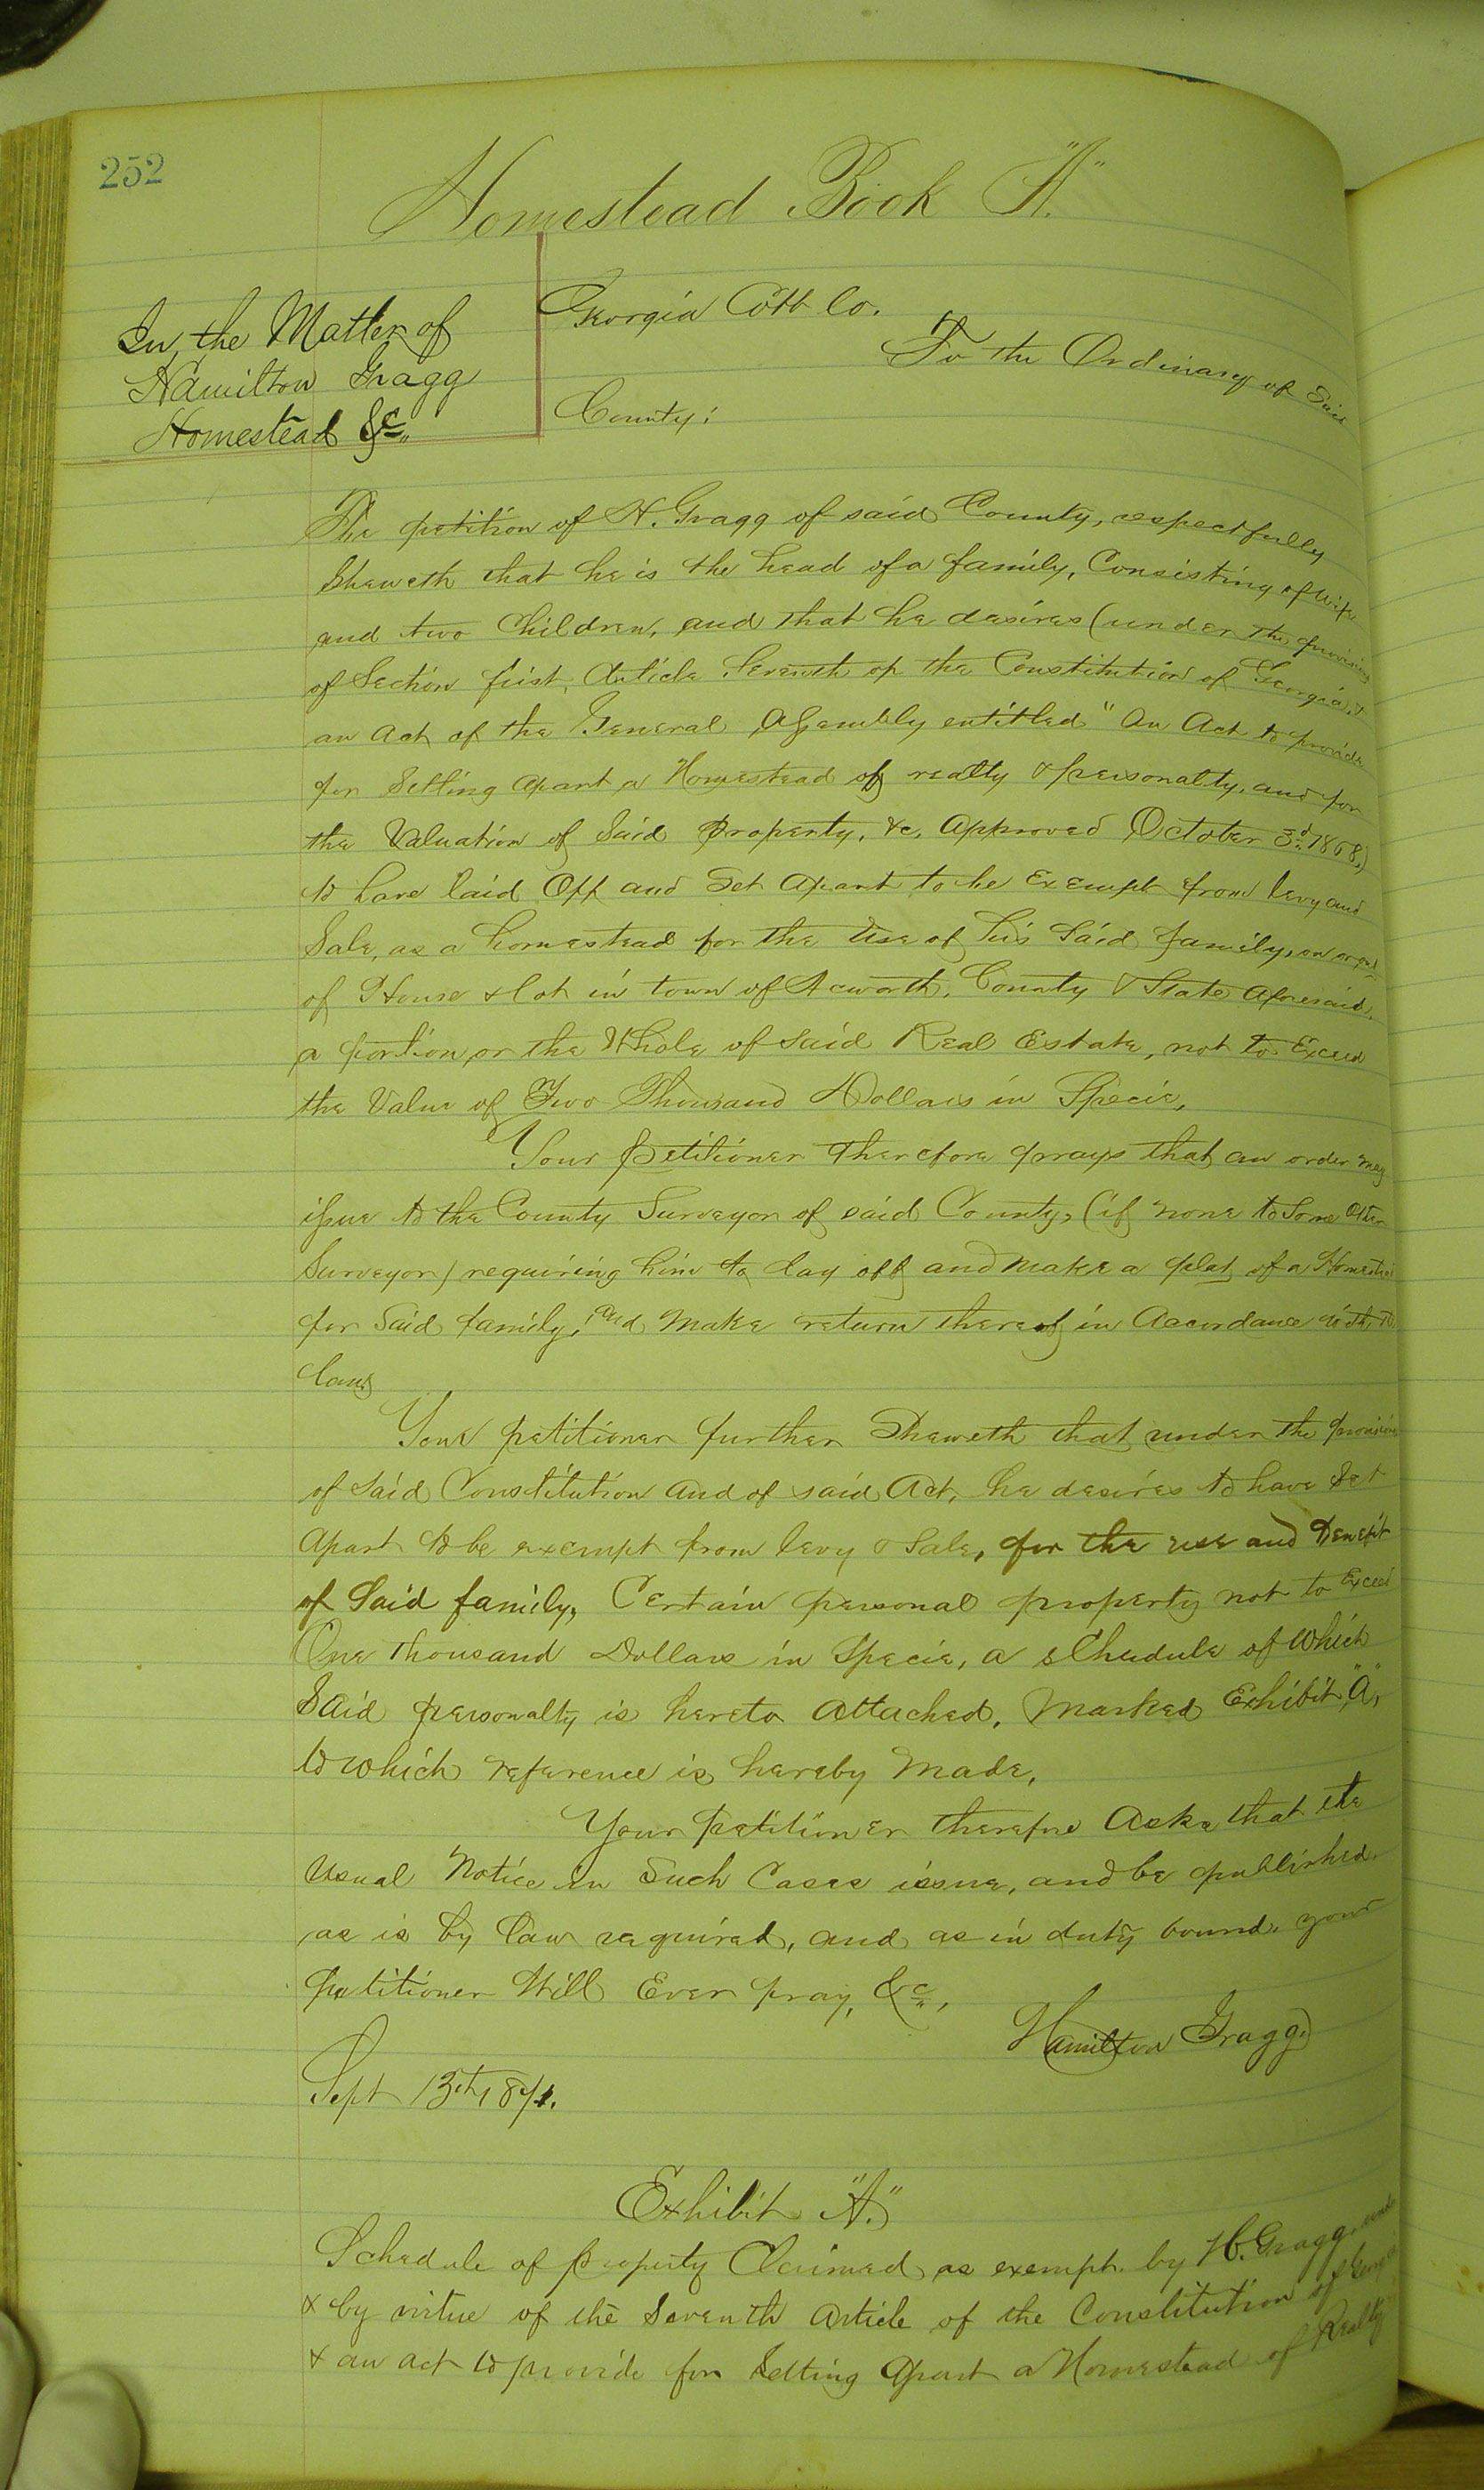 252
Homestead Book "A."
In the Matter of
Hamilton Gragg
Homestead &c.,
Georgia Cobb Co.
To the Ordinary of Said
County:
The petition of H. Gragg of said County, respectfully
Sheweth that he is the head of a family, Consisting of wife
and two Children, and that he desires (under the provisions
of Section first, Article Seventh of the Constitution of Georgia, &
an Act of the General Assembly entitled "An Act to provide
for Setting Apart a Homestead of realty & personalty, and for
the Valuation of Said Property, &c, Approved October 3d 1868,)
to have laid Off and Set Apart to be Exempt from levy and
Sale, as a homestead for the Use of his Said family, on
of House & lot in town of Acworth, County & State Aforesaid,
a portion or the Whole of said Real Estate, not to Exceed
the Value of Two Thousand Dollars in Specie,
Your Petitioner therefore prays that an order may
issue to the County Surveyor of said County, (if none to Some Other
Surveyor) requiring him to lay off and make a plat of a Homestead
for Said family, and Make return thereof in Accordance with
law,
Your petitioner further Sheweth that under the provisions
of said Constitution and of said Act, he desires to have Set
Apart to be exempt from levy & Sale, for the use and Benefit
of Said family, Certain personal property not to Exceed
One thousand Dollars in Specie, a schedule of Which
Said personalty is hereto Attached, Marked Exhibit "A",
to which reference is hereby Made,
Your Petitioner therefore Asks that the
Usual Notice in Such Cases issue, and be published
as is by law required, and as in duty bound, your
petitioner Will Ever pray, &c,
Hamilton Gragg
Sept 13th 1871.
Exhibit "A."
Schedule of Property Claimed as exempt by H. Gragg under
& by virtue of the Seventh Article of the Constitution of Georgia
& an act to provide for Setting Apart a Homestead of Realty